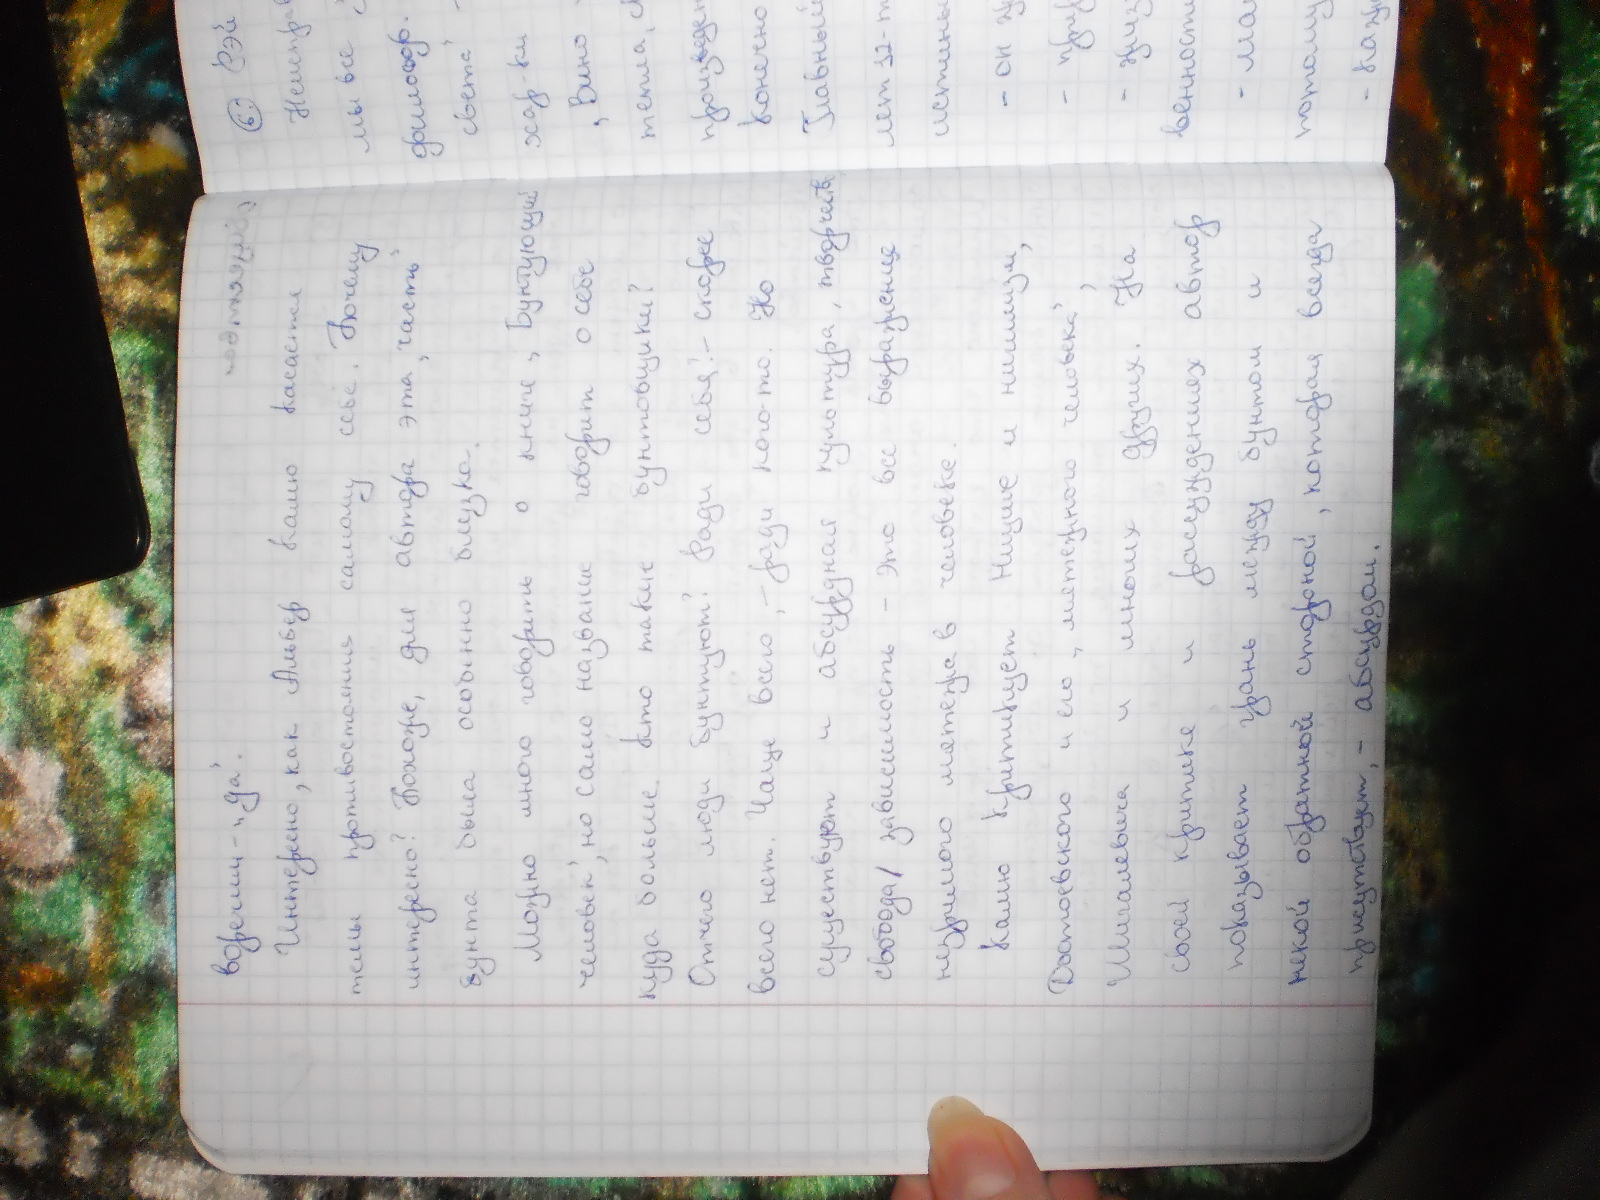 ворении - „да".
Интересно, как Альбер Камю касается
темы противостояния самому себе. Почему
интересно? Похоже, для автора эта „часть"
бунта была особенно близка.
Можно много говорить о книге „Бунтующий
человек", но само название говорит о себе
куда больше. Кто такие бунтовщики?
Отчего люди бунтуют? Ради себя? - скорее
всего нет. Чаще всего, - ради кого-то. Но
существуют и абсурдная культура, творчество,
свобода/зависимость - это все выражение
незримого мятежа в человеке.
Камю критикует Ницше и нигилизм,
Достоевского и его „мятежного человека",
Шигалевича и многих других. На
своей критике и рассуждениях автор
показывает грань между бунтом и
некой обратной стороной, которая всегда
присутствует, - абсурдом.
6. Рэй
мы все
философ.
света"
хар-ки
„Вино
конечно
Главный
лет 12-т
истины
- он
потому